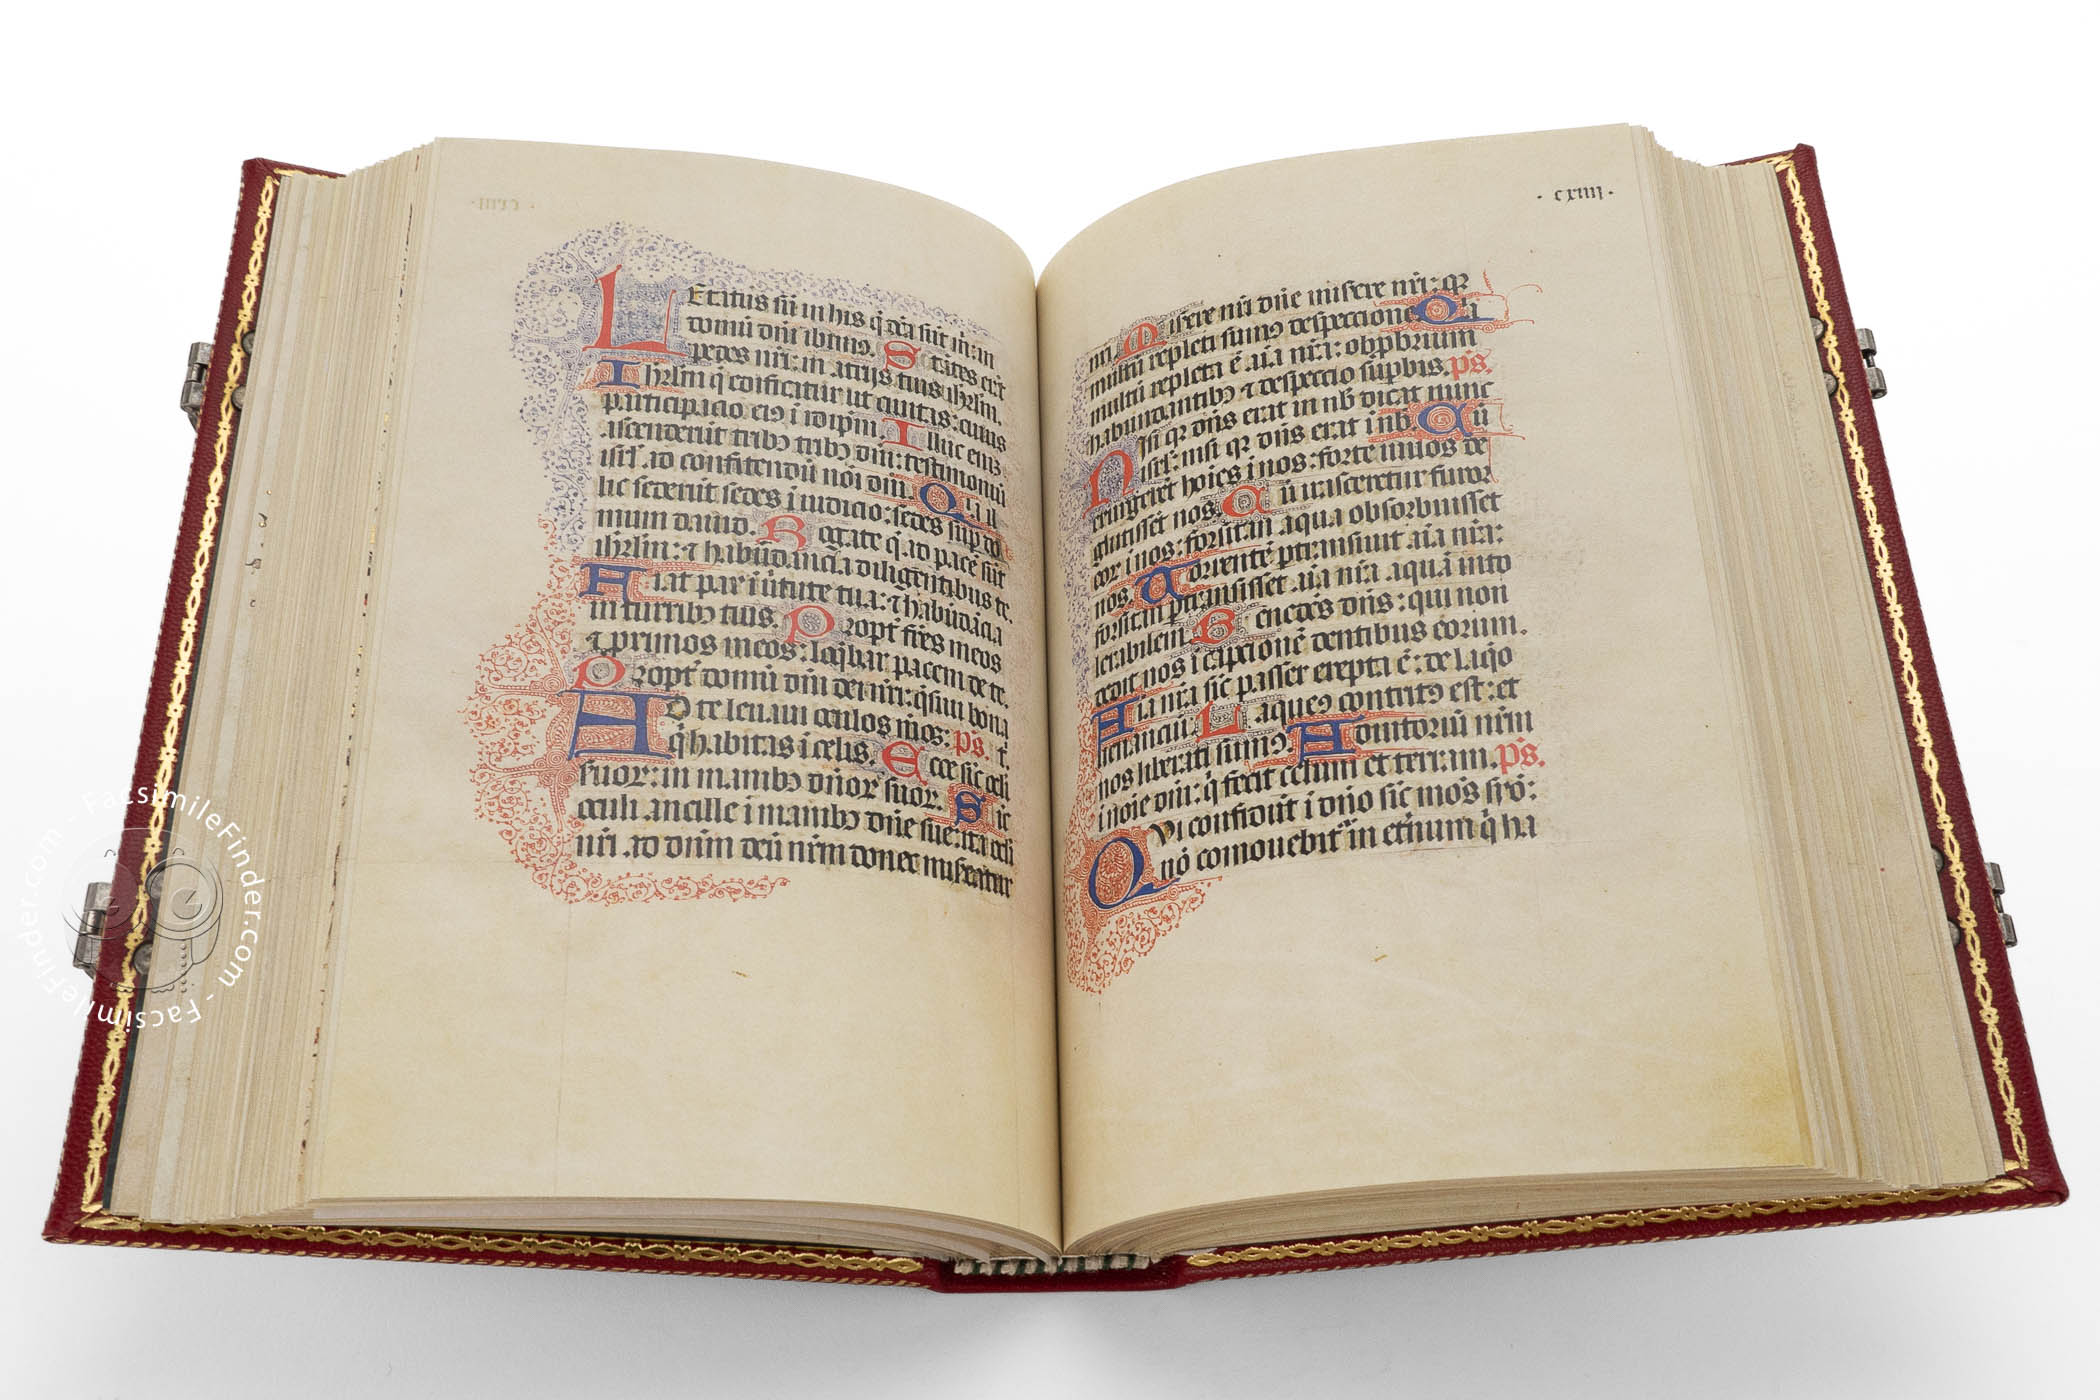 LEtatus sū in his q̄ dc̄a sūt m̄: in
domū dn̄i ibimꝰ. Stātes erāt
pedes nr̄i: in atrijs tuis ihrlm̄.
Ihrlm̄ q̄ edificatur ut ciuitas: cuius
participacio eiꝰ ī idipm̄. Illuc enī
ascenderūt tribꝰ tribꝰ dn̄i: testimoniū
isrl̄. ad confitendū nōi dn̄i. Quia il
lic sederūt sedes ī iudicio: sedes sup̄ do
mum dauid. Rogate q̄ ad pacē sūt
ihrlm̄: ⁊ habūdancia diligentibus te.
Fiat pax ī ūtute tua: ⁊ habūdācia
in turribꝰ tuis. Propt̄ fr̄es meos
⁊ primos meos: loq̄bar pacem de te.
Propt̄ domū dn̄i dei nr̄i: q̄siui bona
AD te leuaui oculos m̄os: ps. t̄.
q̄ habitas ī celis. Ecce sic oc̄li
suoꝝ: in manibꝰ dn̄oꝝ suoꝝ. Sic
oculi ancille ī manibꝰ dn̄e sue: ita oc̄li
nr̄i ad dn̄m deū nr̄m donec misereatur
· cxiiij ·
Misere nr̄i dn̄e misere nr̄i: qꝛ
nr̄i.
multū repleti sumꝰ despeccione. Quia
multū repleta ē aīa nr̄a: obp̄brium
habundantibꝰ ⁊ despectio supbis. ps.
Nisi qꝛ dn̄s erat in nb̄ dicat nunc
isrl̄: nisi qꝛ dn̄s erat ī nb̄. Cū
exurgerēt hoīes ī nos: forte uiuos de
glutissēt nos. Cū irasceretur furor
eoꝝ ī nos: forsitan aqua obsorbuisset
nos. Torrentē ptransiuit aīa nr̄a:
forsitan ptransisset aīa nr̄a aquā into
lerabilem. Benedc̄s dn̄s: qui non
dedit nos ī capcionē dentibus eorum.
Aīa nr̄a sic passer erepta ē: de laq̄o
uenanciū. Laqueꝰ contritꝰ est: et
nos liberati sumꝰ. Adiutoriū nr̄m
ī noīe dn̄i: q̄ fecit celum et terram. ps.
QVi confidūt ī dn̄o sic mōs syō:
nō comouebit̄ in et̄num q̄ ha
FacsimileFinder.com - FacsimileFinder.com - FacsimileFinder.com